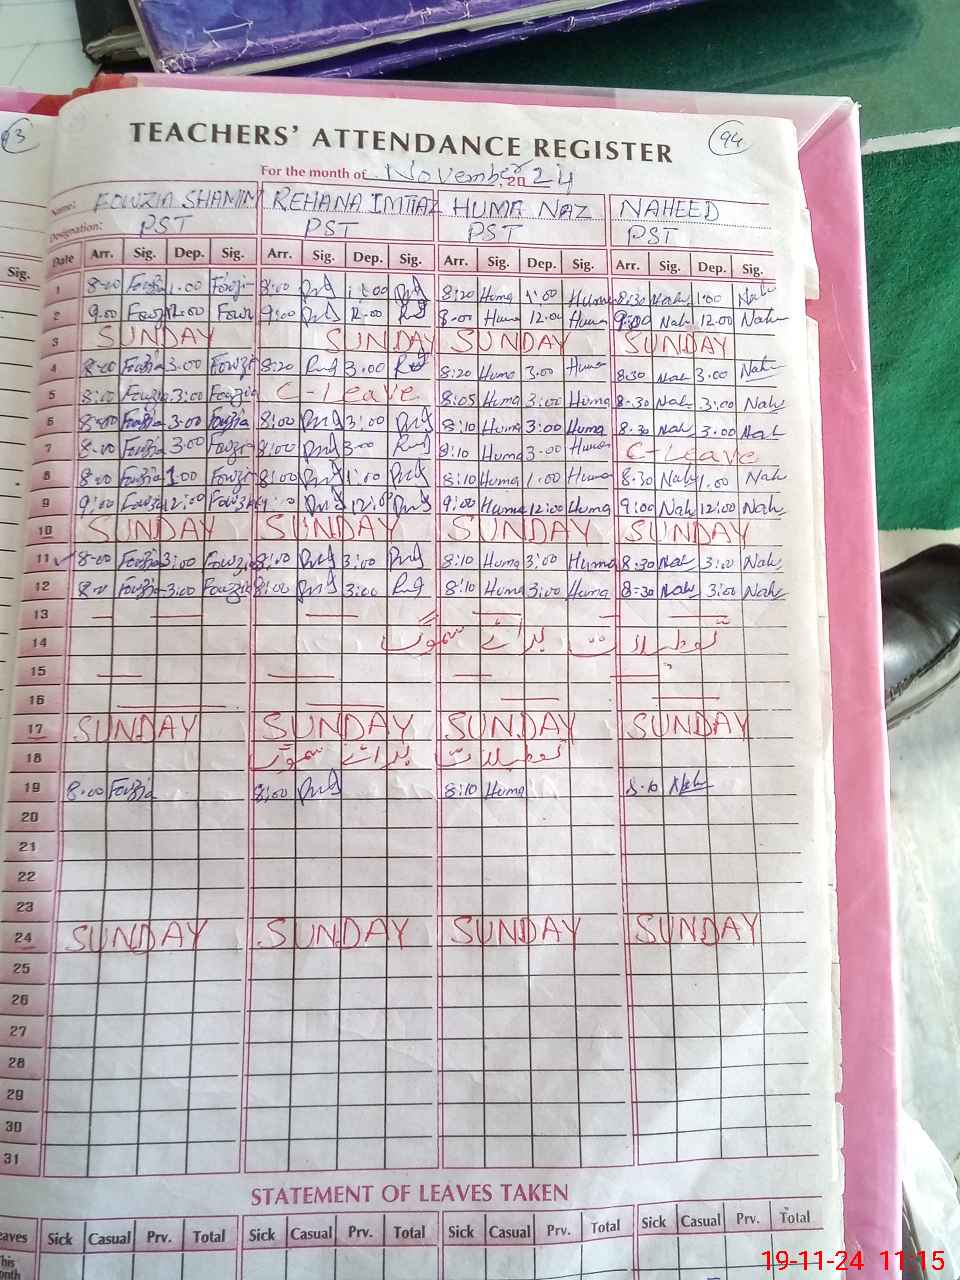 93
TEACHERS' ATTENDANCE REGISTER
94
For the month of November, 2024
Name: FOWZIA SHAMIM REHANA IMTIAZ HUMA NAZ NAHEED
Designation: PST PST PST PST
Sig.
Date Arr. Sig. Dep. Sig. Arr. Sig. Dep. Sig. Arr. Sig. Dep. Sig. Arr. Sig. Dep. Sig.
1 8-00 Fouzia 1.00 Fouzi 8:00 1:00 8:20 Huma 1:00 Huma 8:30 Nah 1:00 Nah
2 9.00 Fouz 12.00 Fouz 9:00 12:00 Huma 12.00 Huma 9:00 Nah 12.00 Nah
3 SUNDAY SUNDAY SUNDAY SUNDAY
4 8-00 Fouzia 3.00 Fowzi 8:20 3.00 8:20 Huma 3.00 Huma 8:30 Nah 3.00 Nah
5 8:00 Fouzia 3:00 Fouzia C-Leave 8:05 Huma 3:00 Huma 8-30 Nah 3:00 Nah
6 8-00 Fouzia 3.00 Fouzia 8:00 3:00 8:10 Huma 3:00 Huma 8.30 Nah 3.00 Nah
7 8-00 Fouzia 3.00 Fouzi 8:00 3:00 8:10 Huma 3.00 Huma C-Leave
8 8-00 Fouzia 1.00 Fouzi 8:00 1:00 8:10 Huma 1.00 Huma 8.30 Nah 1.00 Nah
9 9:00 Fouzia 12:00 Fouzia 12:00 9:00 Huma 12:00 Huma 9:00 Nah 12:00 Nah
10 SUNDAY SUNDAY SUNDAY SUNDAY
11 8-00 Fouzia 3:00 Fouzi 8:00 3:00 8:10 Huma 3:00 Huma 8:30 Nah 3:00 Nah
12 8-00 Fouzia 3:00 Fouzia 8:00 3:00 8:10 Huma 3:00 Huma 8-30 Nah 3:00 Nah
13
14 تعطیلات برائے سموگ
15
16
17 SUNDAY SUNDAY SUNDAY SUNDAY
18 تعطیلات برائے سموگ
19 8.00 Fouzia 8:00 8:10 Huma 8.10 Nah
20
21
22
23
24 SUNDAY SUNDAY SUNDAY SUNDAY
25
26
27
28
29
30
31
STATEMENT OF LEAVES TAKEN
eaves Sick Casual Prv. Total Sick Casual Prv. Total Sick Casual Prv. Total Sick Casual Prv. Total
This
onth
19-11-24 11:15